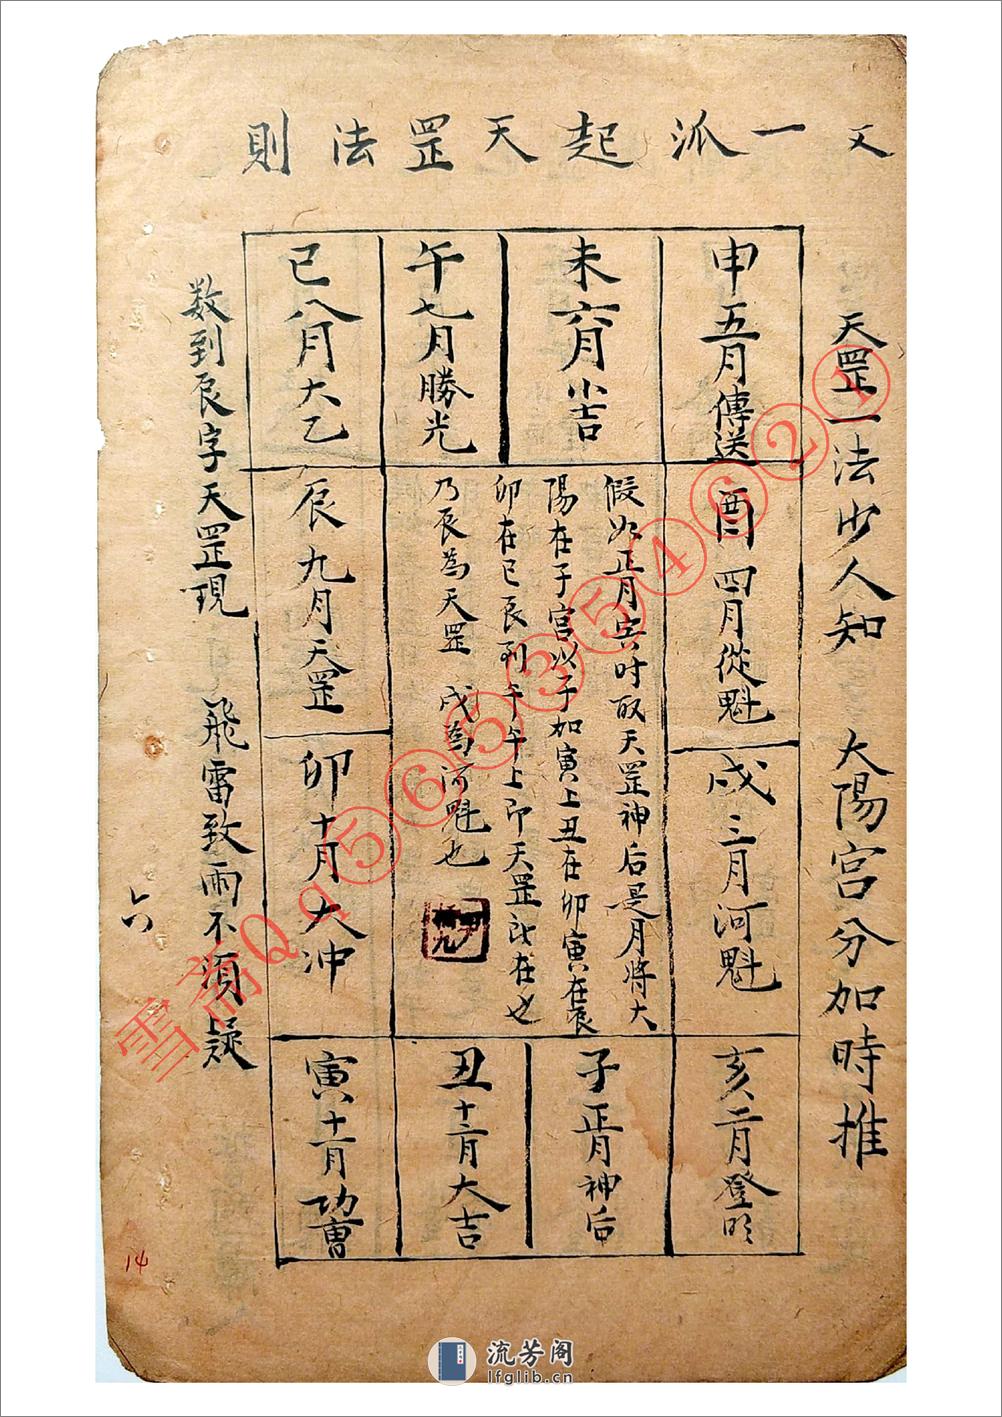 又一派起天罡法則
天罡一法少人知 太陽宮分加時推
申五月傳送
未六月小吉
午七月勝光
巳八月太乙
酉四月從魁
戌三月河魁
假如正月寅时取天罡神后是月將太
陽在子宮以子加寅上丑在卯寅在辰
卯在巳辰到午午上即天罡所在也
乃辰為天罡 戌為河魁也
辰九月天罡
卯十月大冲
亥二月登明
子正月神后
丑十二月大吉
寅十一月功曹
数到辰字天罡現 飛雷致雨不須疑
六
14
雪斋Qq⑤⑥⑤③⑤④⑥②①
流芳阁
lfglib.cn